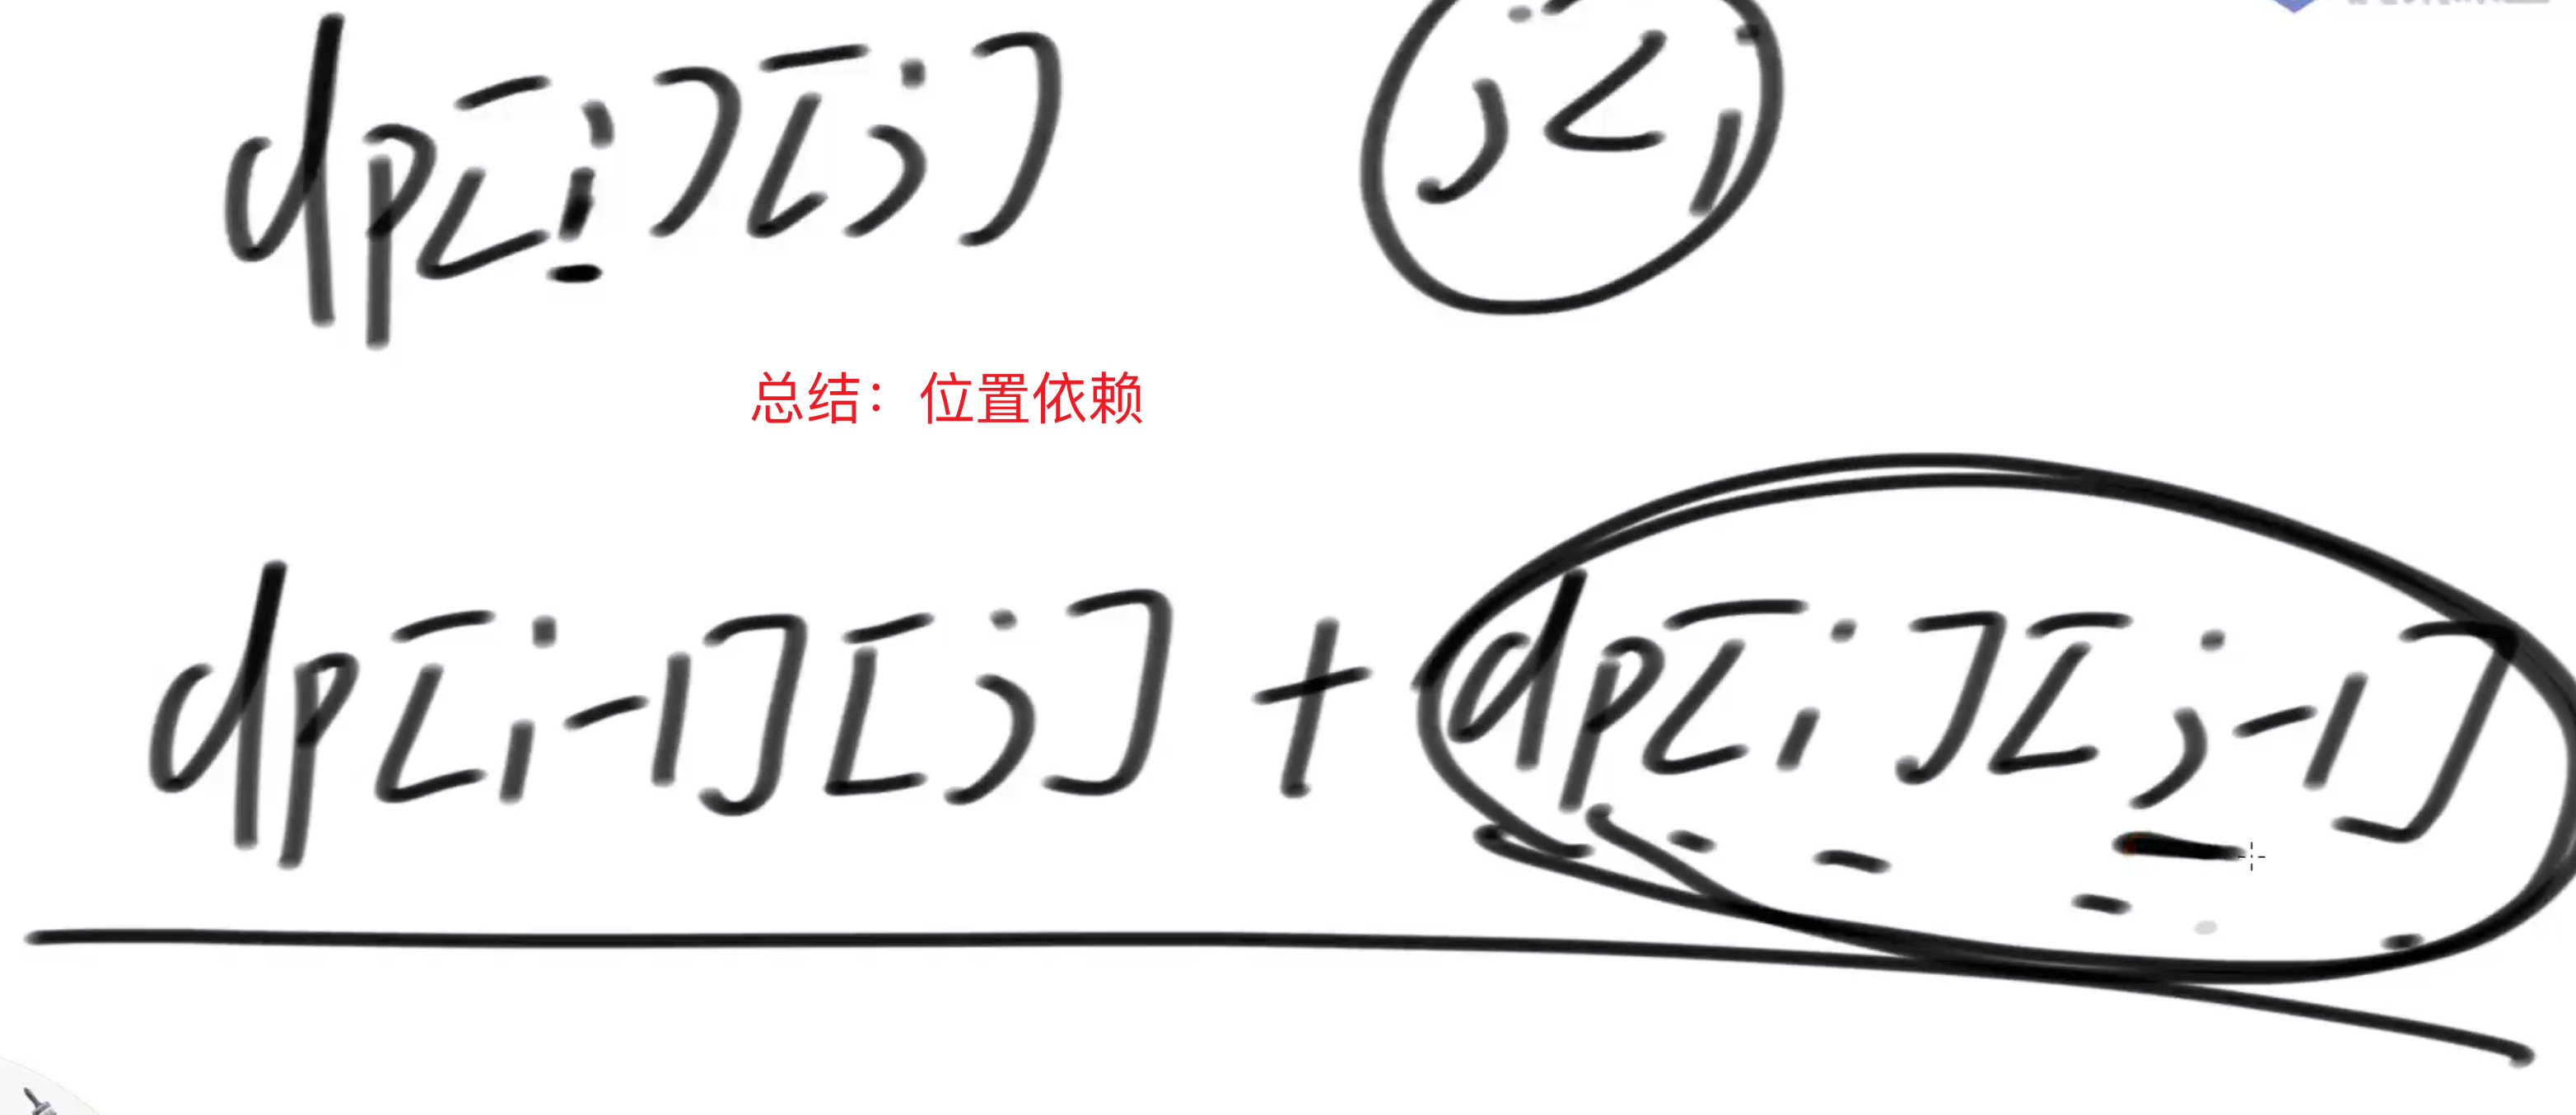 dp[i][j] j<i
总结：位置依赖
dp[i-1][j] + dp[i][j-1]